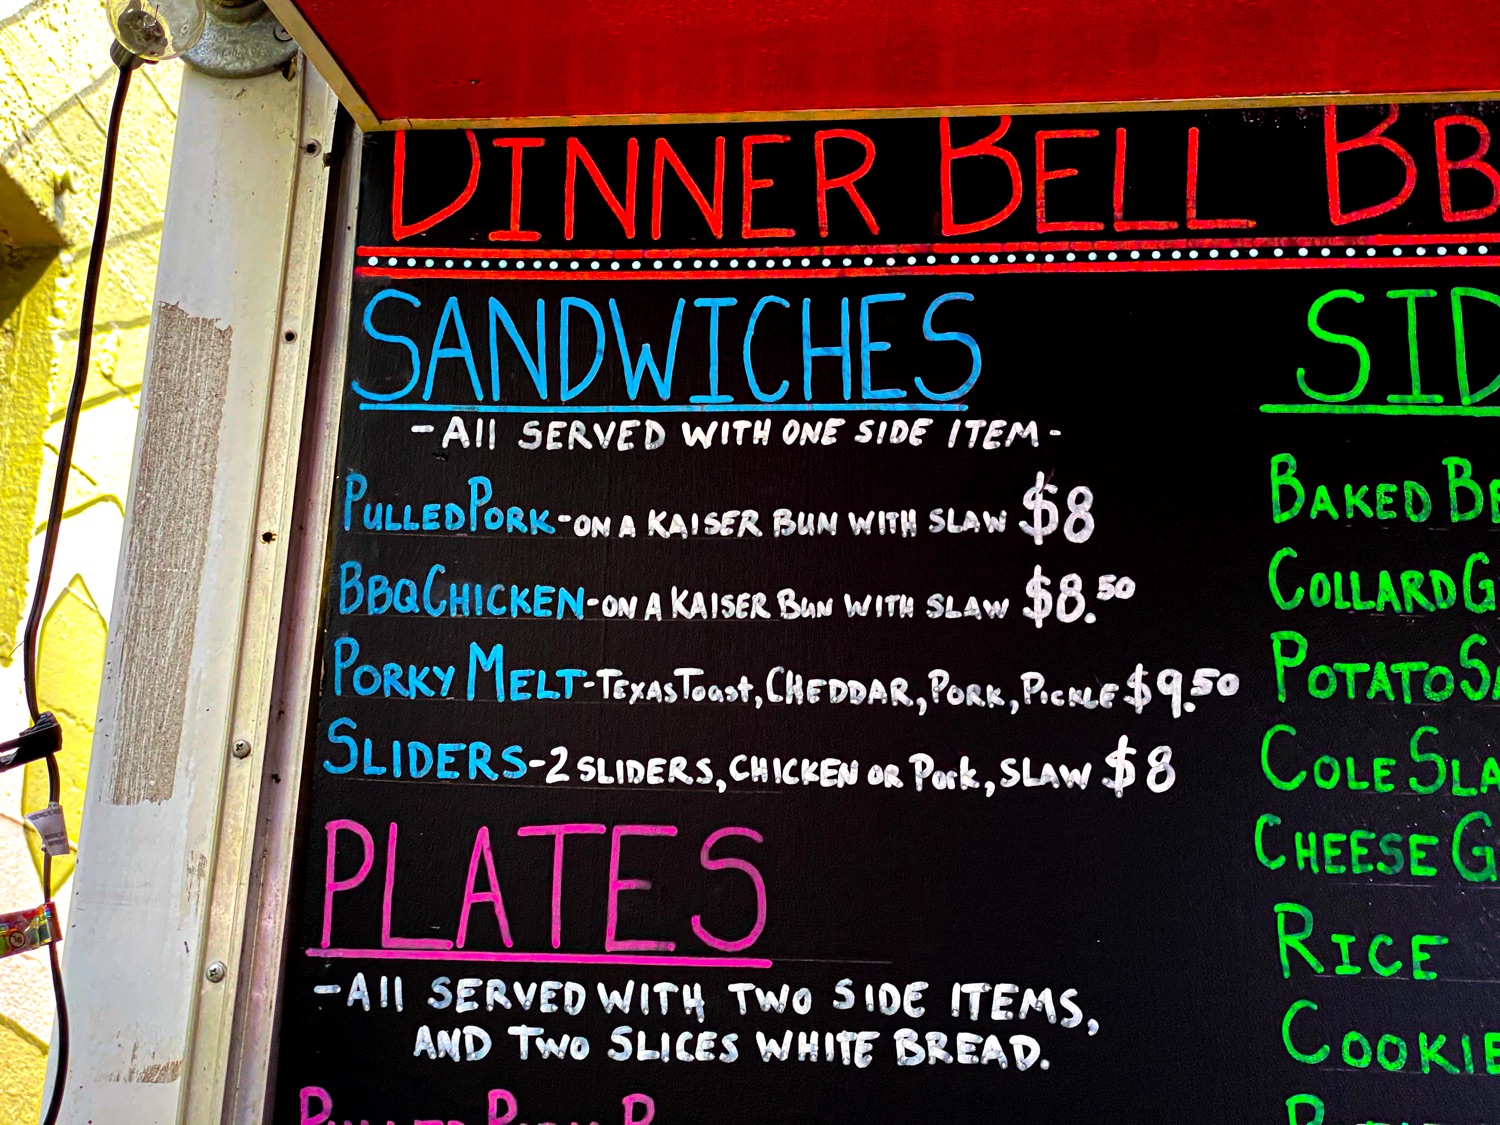 DINNER BELL BB
SANDWICHES
-All SERVED WITH ONE SIDE ITEM-
PULLED PORK-ON A KAISER BUN WITH SLAW $8
BBQ CHICKEN-ON A KAISER BUN WITH SLAW $8.50
PORKY MELT-TEXAS Toast, CHEDDAR, PORK, PICKLE $9.50
SLIDERS-2 SLIDERS, CHICKEN OR Pork, SLAW $8
PLATES
-All SERVED WITH TWO SIDE ITEMS,
AND TWO SLICES WHITE BREAD.
PULLED PORK P
SID
BAKED BE
COLLARD G
POTATO SA
COLE SLA
CHEESE G
RICE
COOKIE